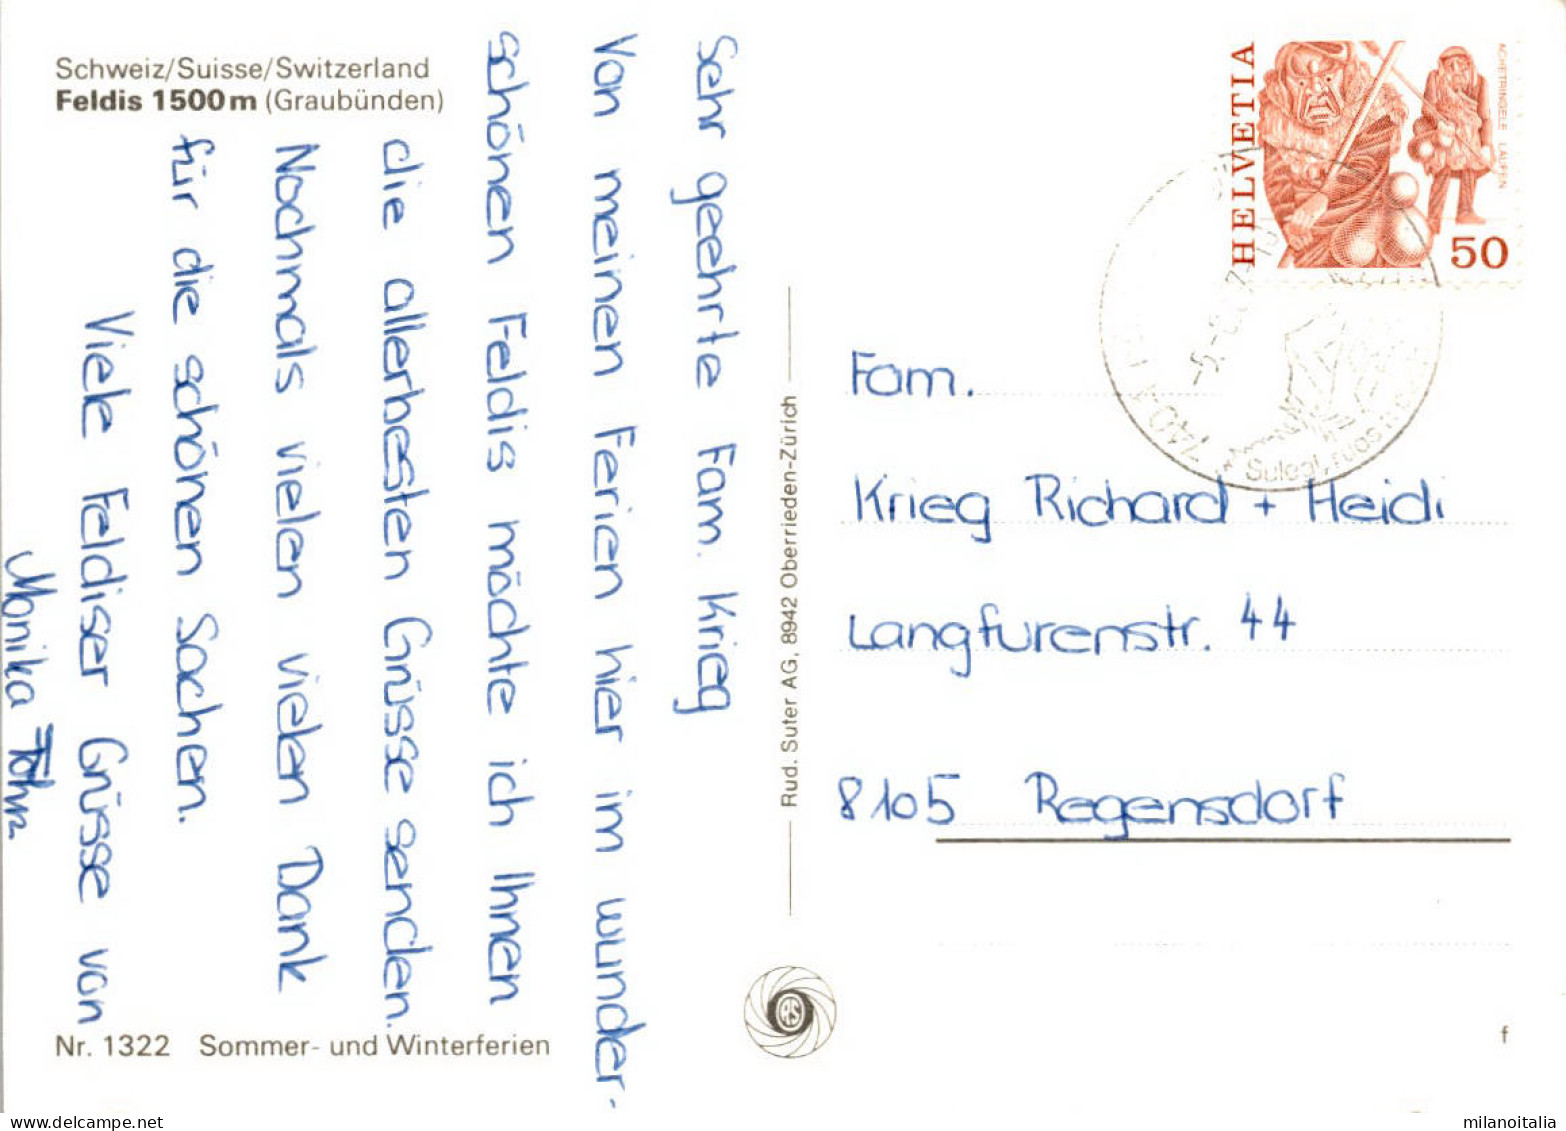 Schweiz/Suisse/Switzerland
Feldis 1500 m (Graubünden)
Sehr geehrte Fam. Krieg
Von meinen Ferien hier im wunder-
schönen Feldis möchte ich Ihnen
die allerbesten Grüsse senden.
Nochmals vielen vielen Dank
für die schönen Sachen.
Viele Feldiser Grüsse von
Monika
Nr. 1322 Sommer- und Winterferien
Rud. Suter AG, 8942 Oberrieden-Zürich
RS
HELVETIA
ACHETRINGELE LAUPEN
50
Fam.
Krieg Richard + Heidi
Langfurenstr. 44
8105 Regensdorf
f
milanoitalia